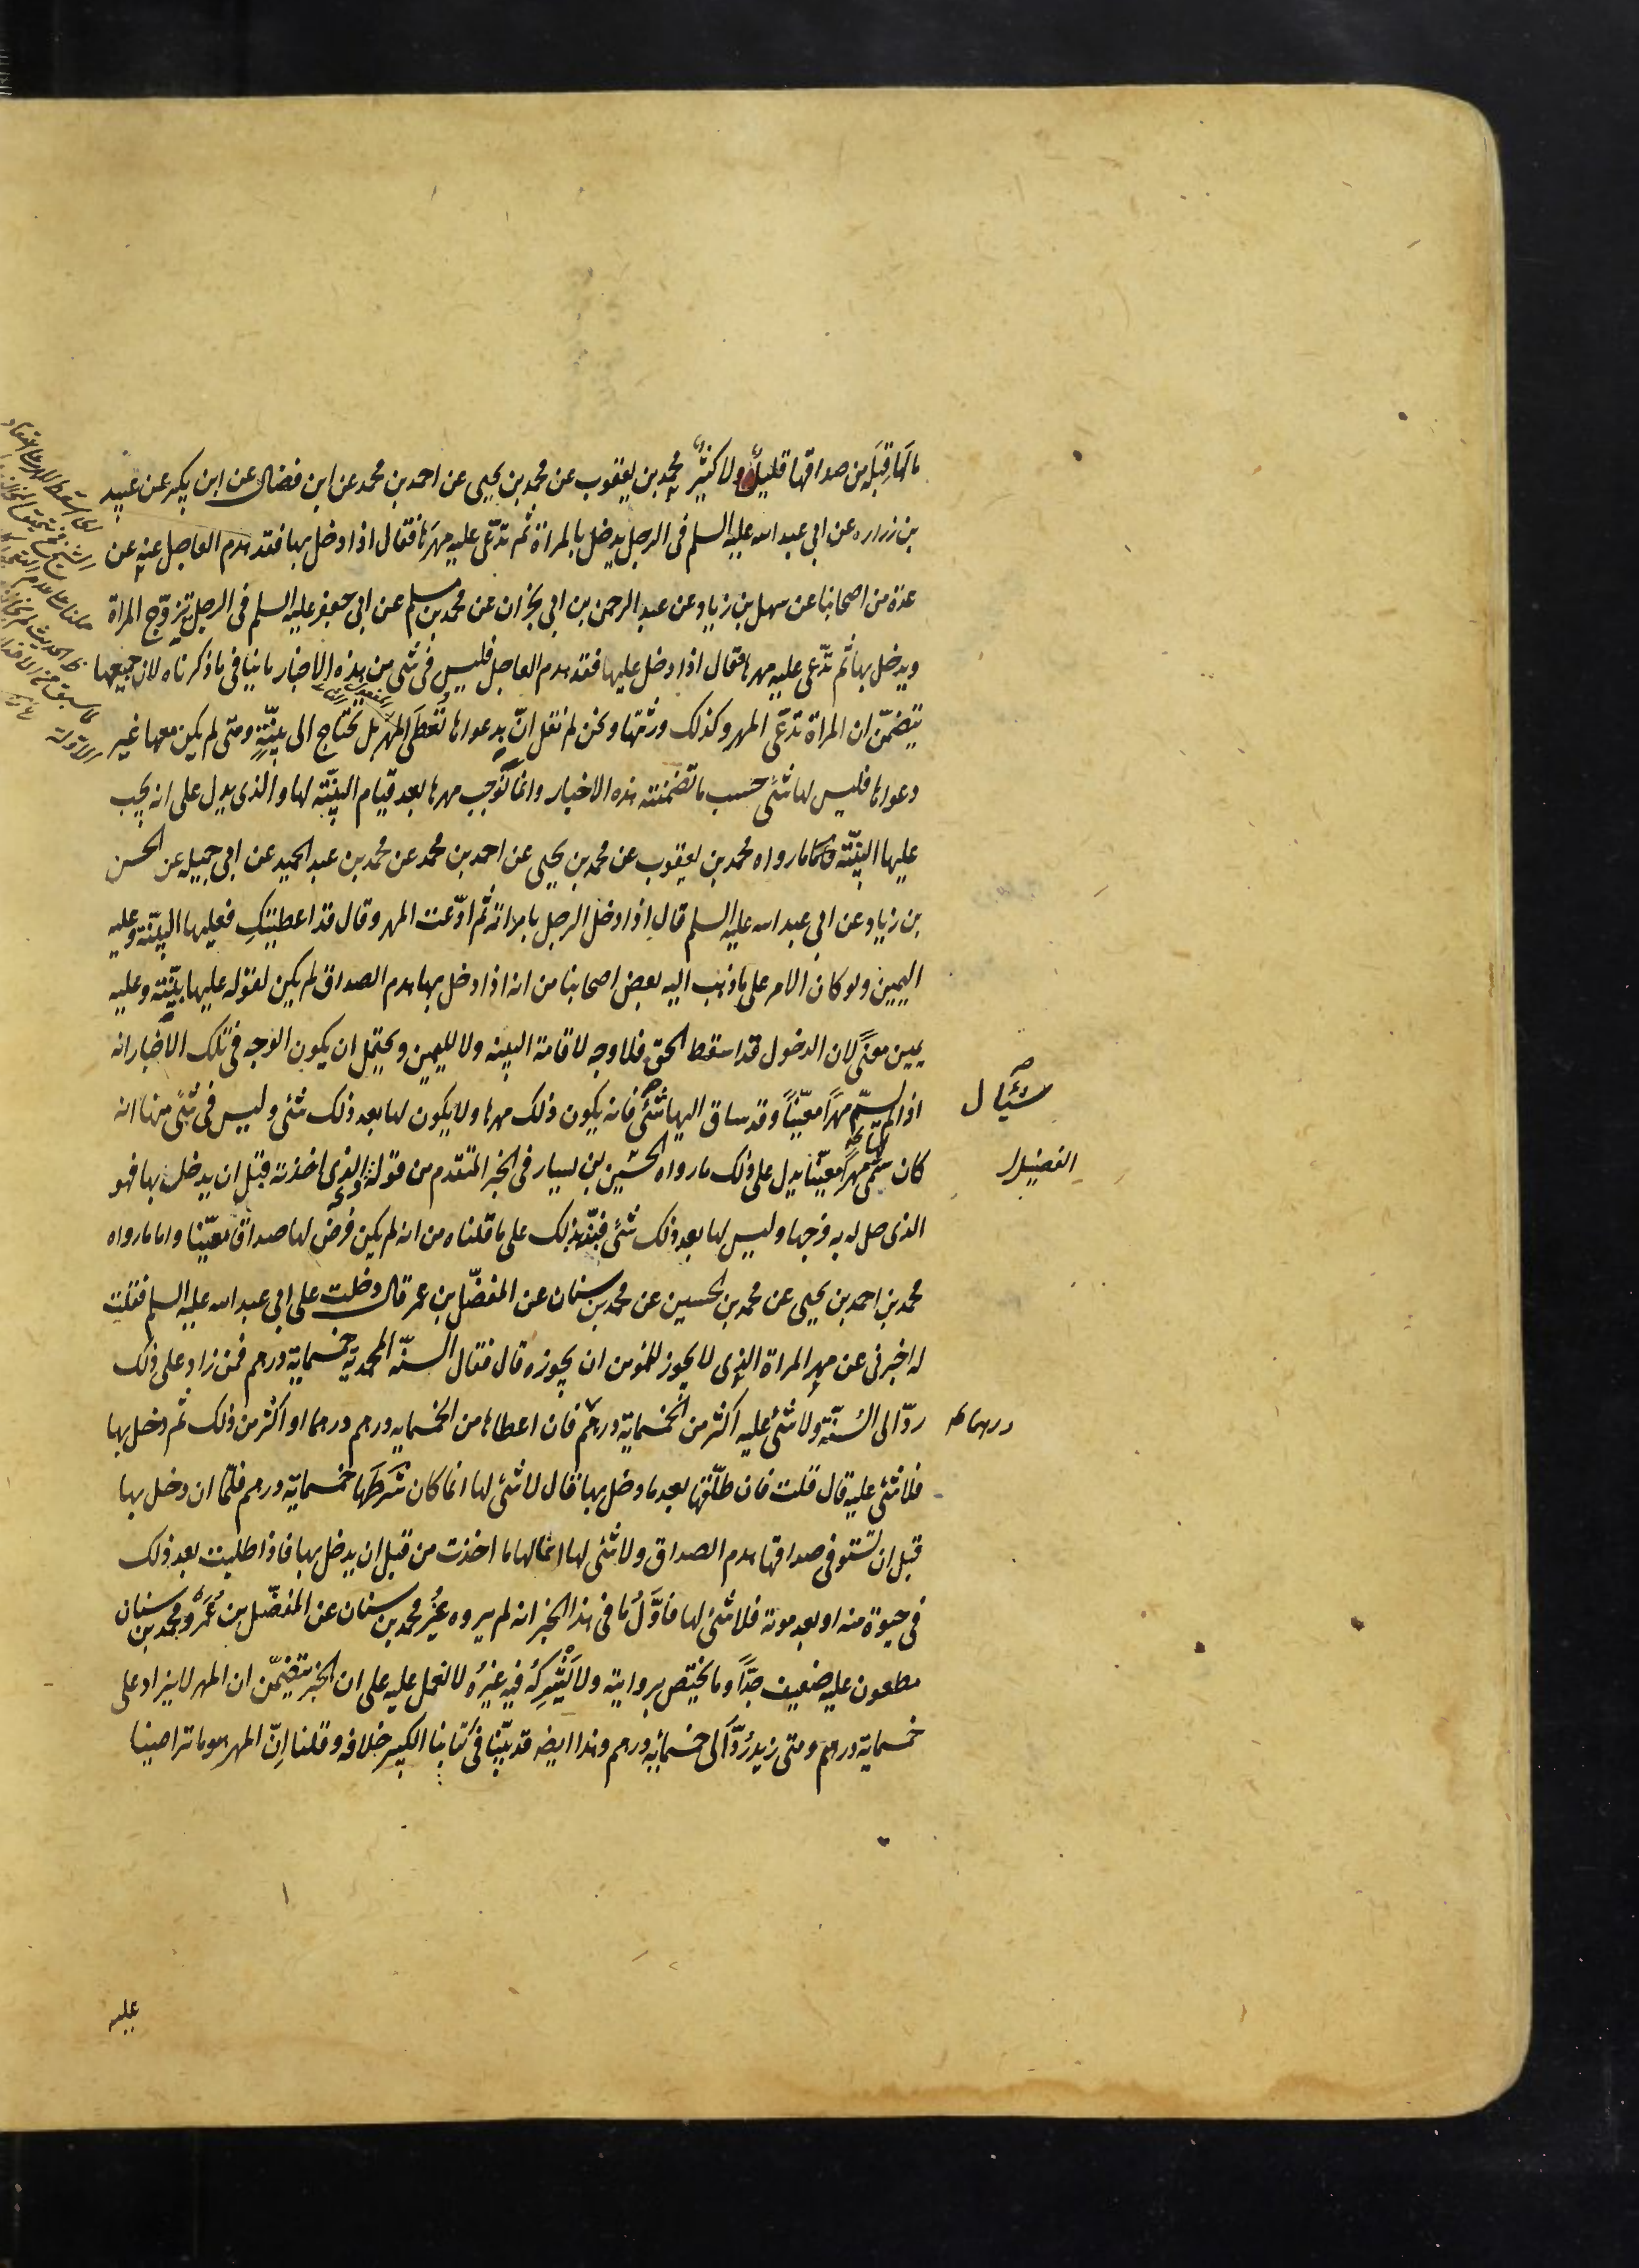 مالها قبله من صداقها قليل ولا كثير محمد بن يعقوب عن محمد بن يحيى عن احمد بن محمد عن ابن فضال عن ابن بكير عن عبيد
بن زراره عن ابى عبد الله عليه السلم فى الرجل يدخل بالمراة ثم تدّعى عليه مهرها فقال اذا دخل بها فقد هدم العاجل عنه عن
عدة من اصحابنا عن سهل بن زياد عن عبد الرحمن بن ابى نجران عن محمد بن مسلم عن ابى جعفر عليه السلم فى الرجل يتزوّج المراة
ويدخل بها ثم تدّعى عليه مهرها فقال اذا دخل عليها فقد هدم العاجل فليس فى شئ من هذه الاخبار ما ينافى ما ذكرناه لان جميعها
يتضمّن ان المراة تدّعى المهر وكذلك ورثتها ونحن لم نقل انّ بدعواها تُعطَى المهر بل تحتاج الى بيّنةٍ ومتى لم يكن معها غير
دعواها فليس لها شئ حسب ما تضمنته هذه الاخبار وانما نوجب مهرها بعد قيام البيّنة لها والذى يدل على انه يجب
عليها البيّنة ما رواه محمد بن يعقوب عن محمد بن يحيى عن احمد بن محمد عن محمد بن عبد الحميد عن ابى جميله عن الحسن
بن زياد عن ابى عبد الله عليه السلم قال اذا دخل الرجل بامراته ثم ادّعت المهر وقال قد اعطيتكِ فعليها البيّنة وعليه
اليمين ولو كان الامر على ما ذهب اليه بعض اصحابنا من انه اذا دخل بها هدم الصداق لم يكن لقوله عليها بيّنة وعليه
يمين معنًى لان الدخول قد اسقط الحق فلا وجه لاقامة البينه ولا لليمين ويحتمل ان يكون الوجه فى تلك الاخبار انه
اذا لم يسمّ مهرًا معيّنًا وقد ساق اليها شئ فانه يكون ذلك مهرها ولا يكون لها بعد ذلك شئ وليس فى شئ منها انه
كان سمّى لها مهرًا معيّنا يدل على ذلك ما رواه الحسين بن يسار فى الخبر المتقدم من قوله الذى اخذته قبل ان يدخل بها فهو
الفضيل
الذى حل له به فرجها وليس لها بعد ذلك شئ فنبّه بذلك على ما قلناه من انه لم يكن فرض لها صداقًا معيّنا واما ما رواه
محمد بن احمد بن يحيى عن محمد بن الحسين عن محمد بن سنان عن المفضّل بن عمر قال دخلت على ابى عبد الله عليه السلم فقلت
له اخبرنى عن مهر المراة الذى لا يجوز للمؤمن ان يجوزه قال فقال السنّة المحمدية خمسماية درهم فمن زاد على ذلك
ردّ الى السُنّة ولا شئ عليه اكثر من الخمسماية درهم فان اعطاها من الخمسمايه درهم درهما او اكثر من ذلك ثم دخل بها
درهما
فلا شئ عليه قال قلت فان طلّقها بعد ما دخل بها قال لا شئ لها انما كان شَرطَها خمسماية درهم فلمّا ان دخل بها
قبل ان تستوفى صداقها هدم الصداق ولا شئ لها انما لها ما اخذت من قبل ان يدخل بها فاذا طلبت بعد ذلك
فى حيوة منه او بعد موته فلا شئ لها فاوّل ما فى هذا الخبر انه لم يروه غيرُ محمد بن سنان عن المفضّل بن عُمَر ومحمد بن سنان
مطعون عليه ضعيف جدًّا وما يختص بروايته ولا يشركه فيه غيرُه لا نعمل عليه على ان الخبر يتضمّن ان المهر لا يزاد على
خمسماية درهم ومتى زيد رُدّ الى خمسمايه درهم وهذا ايضا قد بيّنّا فى كتابنا الكبير خلافه وقلنا اِنّ المهر هو ما تراضينا
عليه